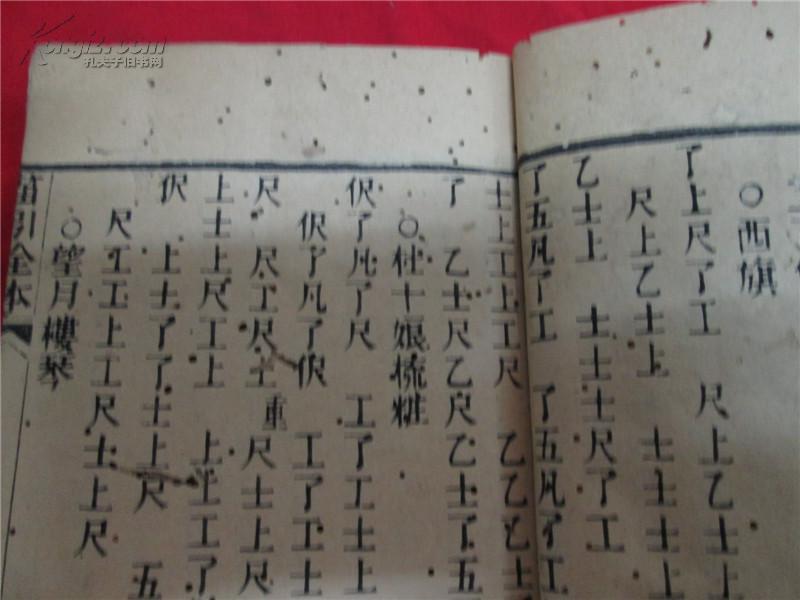 ○西旗
了上尺了工 尺上乙士上
尺上乙士上 士士士士
乙士上 士士士尺了工
了五凡了工 了五凡了工
士上工上工尺 乙乙乙士
了 乙士尺乙尺乙士了五
○杜十娘梳粧
伬了凡了尺 工了工士上
伬了凡了伬 工了工士
尺 尺工尺士重尺士上尺
上士上尺工上 上士工了
伬 上士了了士上尺 五
尺工工上工尺士上尺
○望月樓琴
笛引全本
Kongfz.com
孔夫子旧书网